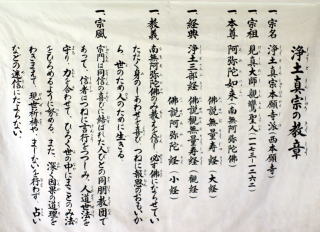 浄土真宗の教章
一、宗名
浄土真宗本願寺派(西本願寺)
一、宗祖
見真大師親鸞聖人(一一七三-一二六二)
一、本尊
阿弥陀如来(南無阿弥陀佛)
一、経典
浄土三部経
佛説無量寿経(大経)
佛説観無量寿経(観経)
佛説阿弥陀経(小経)
一、教義
南無阿弥陀佛のみ教えを信じ、必ず佛にならせていた
だく身のしあわせを喜び、つねに報恩のおもいか
ら、世のため人のために生きる。
一、宗風
宗門は同信の喜びに結ばれた人びとの同朋教団で
あって、信者はつねに言行をつつしみ、人道世法を
守り、力を合わせて、ひろく世の中にまことのみ法
をひろめるように努める。また、深く因果の道理を
わきまえて、現世祈祷や、まじないを行わず、占い
などの迷信にたよらない。